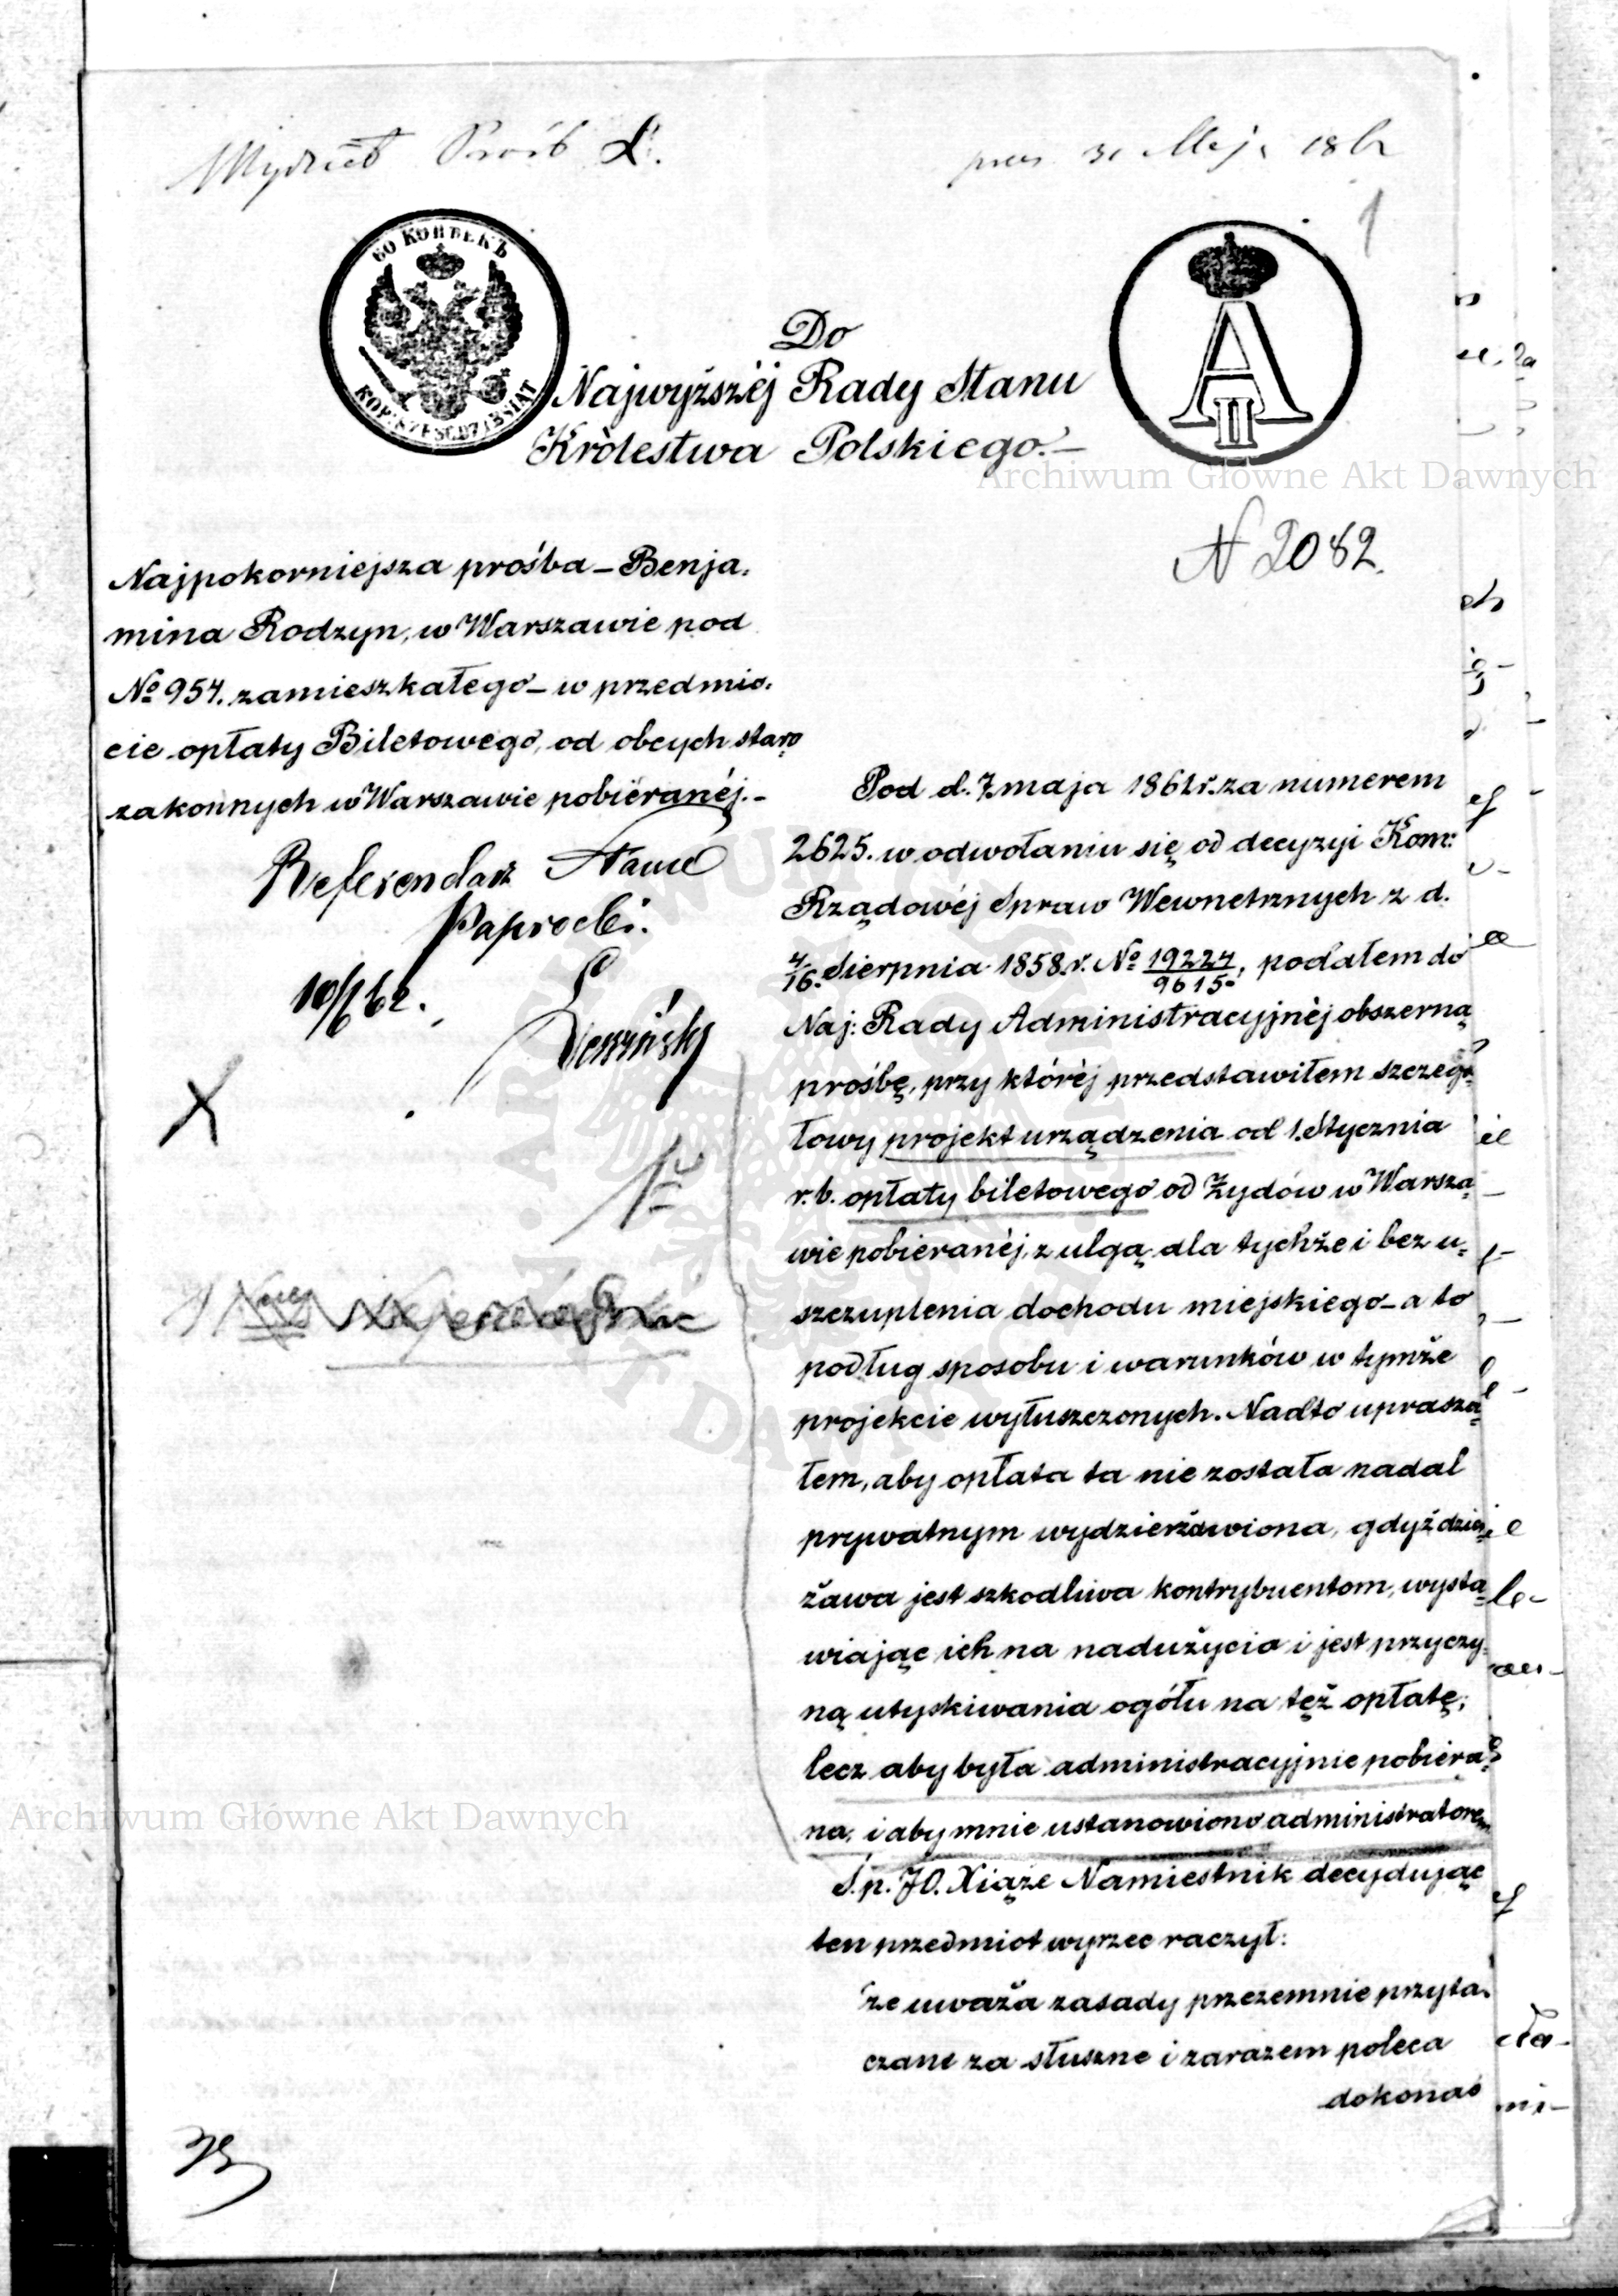 Wydział Próśb
31 Maja 1862
1
60 КОПѢЕКЪ
KOP. SZEŚĆDZIESIĄT
A II
Do
Najwyższéj Rady Stanu
Królestwa Polskiego.—
N 2082.
Najpokorniejsza prośba – Benja-
mina Rodzyn, w Warszawie pod
№ 957. zamieszkałego – w przedmio-
cie opłaty Biletowego, od obcych staro
zakonnych w Warszawie pobiéranéj.–
Referendarz Stanu
Paprocki.
10/6 62.
X
Pod d. 7. maja 1861 r. za numerem
2625. w odwołaniu się od decyzyi Kom:
Rządowéj Spraw Wewnetrznych z d.
4/16. Sierpnia 1858. r. № 19224/9615, podałem do
Naj: Rady Administracyjnéj obszerną
prośbę, przy któréj przedstawiłem szczegó-
łowy projekt urządzenia od 1. Stycznia
r. b. opłaty biletowego od Żydów w Warsza-
wie pobiéranéj, z ulgą dla tychże i bez u-
szczuplenia dochodu miejskiego – a to
podług sposobu i warunków w tymże
projekcie wyłuszczonych. Nadto uprasza-
łem, aby opłata ta nie została nadal
prywatnym wydzierżawiona, gdyż dzier-
żawa jest szkodliwa kontrybuentom, wysta-
wiając ich na nadużycia i jest przyczy-
ną utyskiwania ogółu na tęż opłatę,
lecz aby była administracyjnie pobiéra-
na, i aby mnie ustanowiono administratorem
Ś. p. JO. Xiąże Namiestnik decydując
ten przedmiot wyrzec raczył:
że uważa zasady przezemnie przyta-
czane za słuszne i zarazem poleca
dokonać
Archiwum Główne Akt Dawnych
Archiwum Główne Akt Dawnych